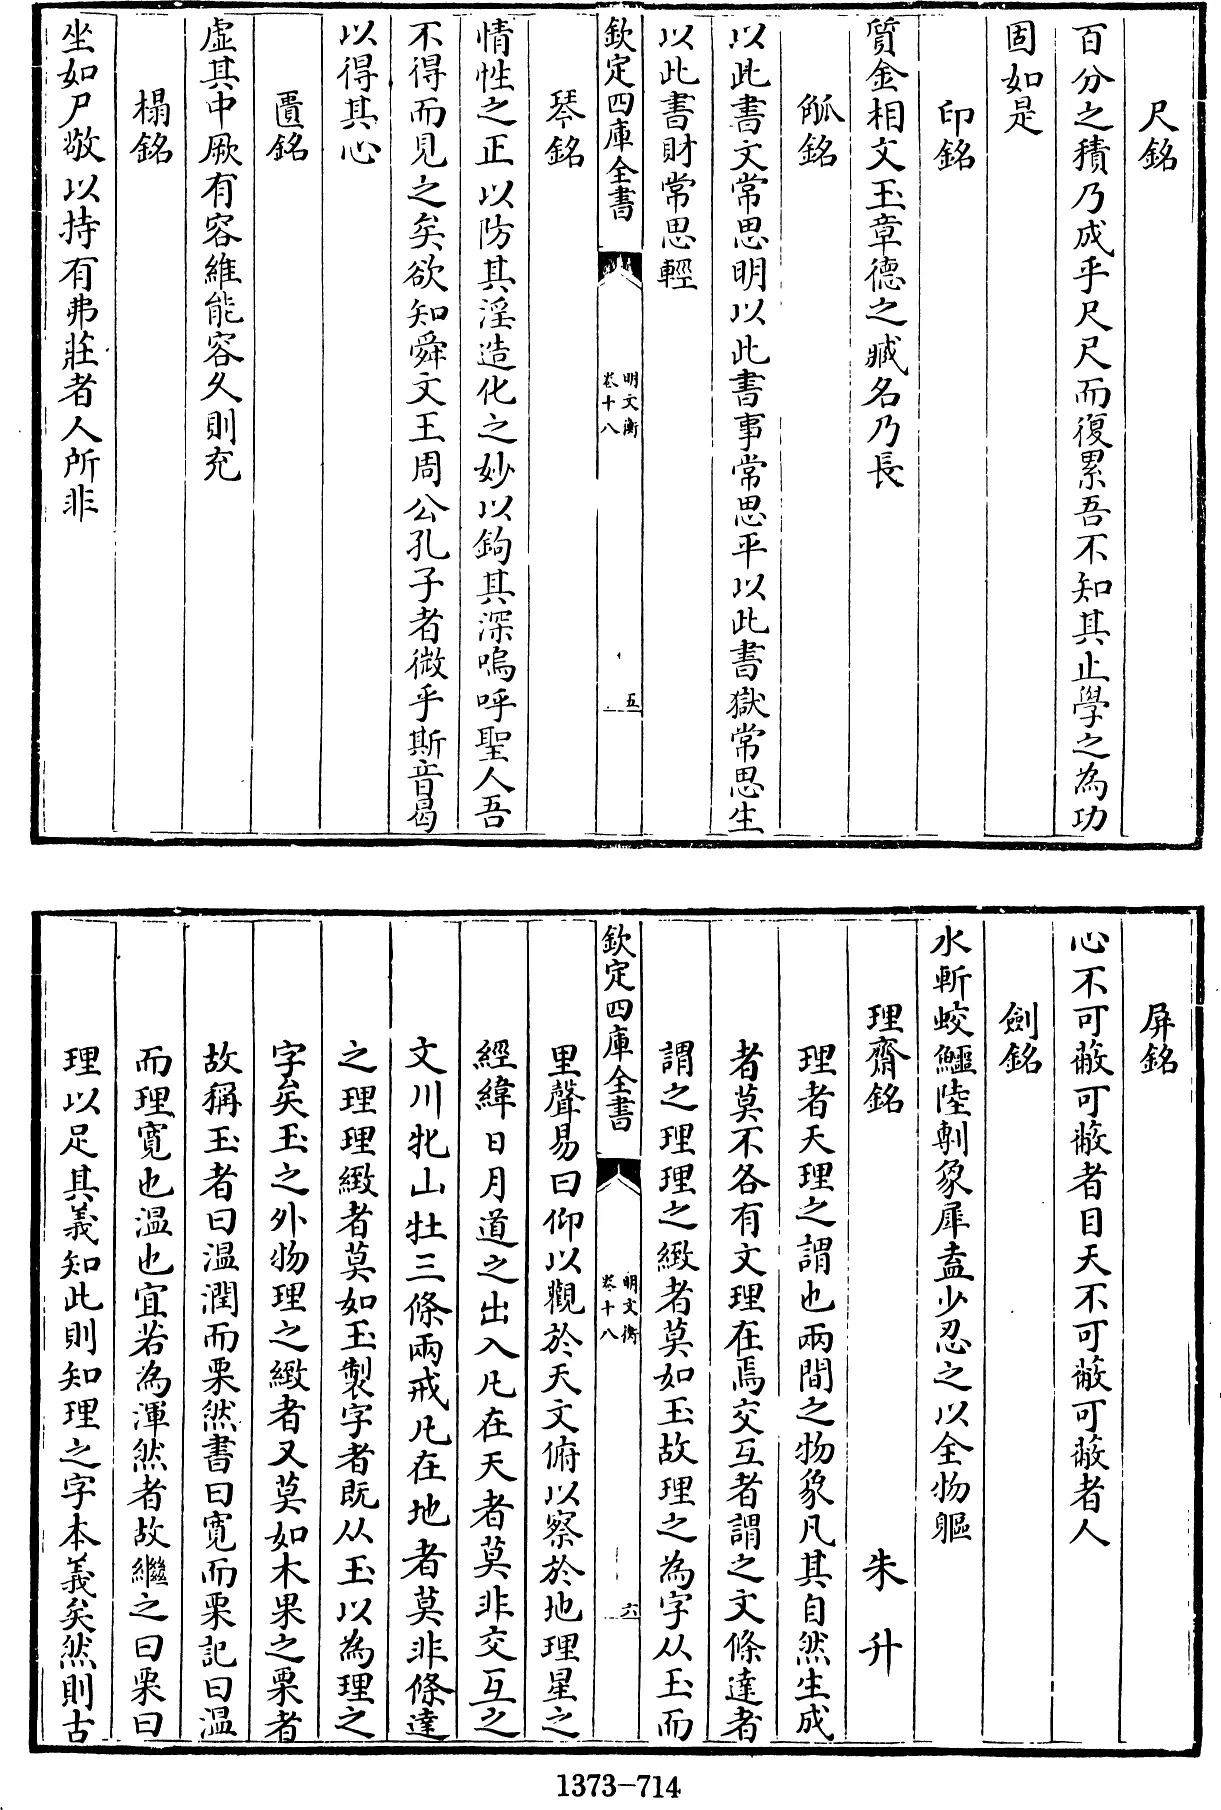 尺銘
百分之積乃成乎尺尺而復累吾不知其止學之為功
固如是
印銘
質金相文玉章德之臧名乃長
觚銘
以此書文常思明以此書事常思平以此書獄常思生
以此書財常思輕
欽定四庫全書
明文衡
卷十八
五
琴銘
情性之正以防其淫造化之妙以鉤其深嗚呼聖人吾
不得而見之矣欲知舜文王周公孔子者微乎斯音曷
以得其心
匱銘
虛其中厥有容維能容久則充
榻銘
坐如尸敬以持有弗莊者人所非
屏銘
心不可蔽可蔽者目天不可蔽可蔽者人
劍銘
水斬蛟鱷陸剸象犀盍少忍之以全物軀
理齋銘 朱升
理者天理之謂也兩間之物象凡其自然生成
者莫不各有文理在焉交互者謂之文條達者
謂之理理之緻者莫如玉故理之為字从玉而
欽定四庫全書
明文衡
卷十八
六
里聲易曰仰以觀於天文俯以察於地理星之
經緯日月道之出入凡在天者莫非交互之
文川牝山牡三條兩戒凡在地者莫非條達
之理理緻者莫如玉製字者既从玉以為理之
字矣玉之外物理之緻者又莫如木果之栗者
故稱玉者曰溫潤而栗然書曰寬而栗記曰溫
而理寬也溫也宜若為渾然者故繼之曰栗曰
理以足其義知此則知理之字本義矣然則古
1373-714